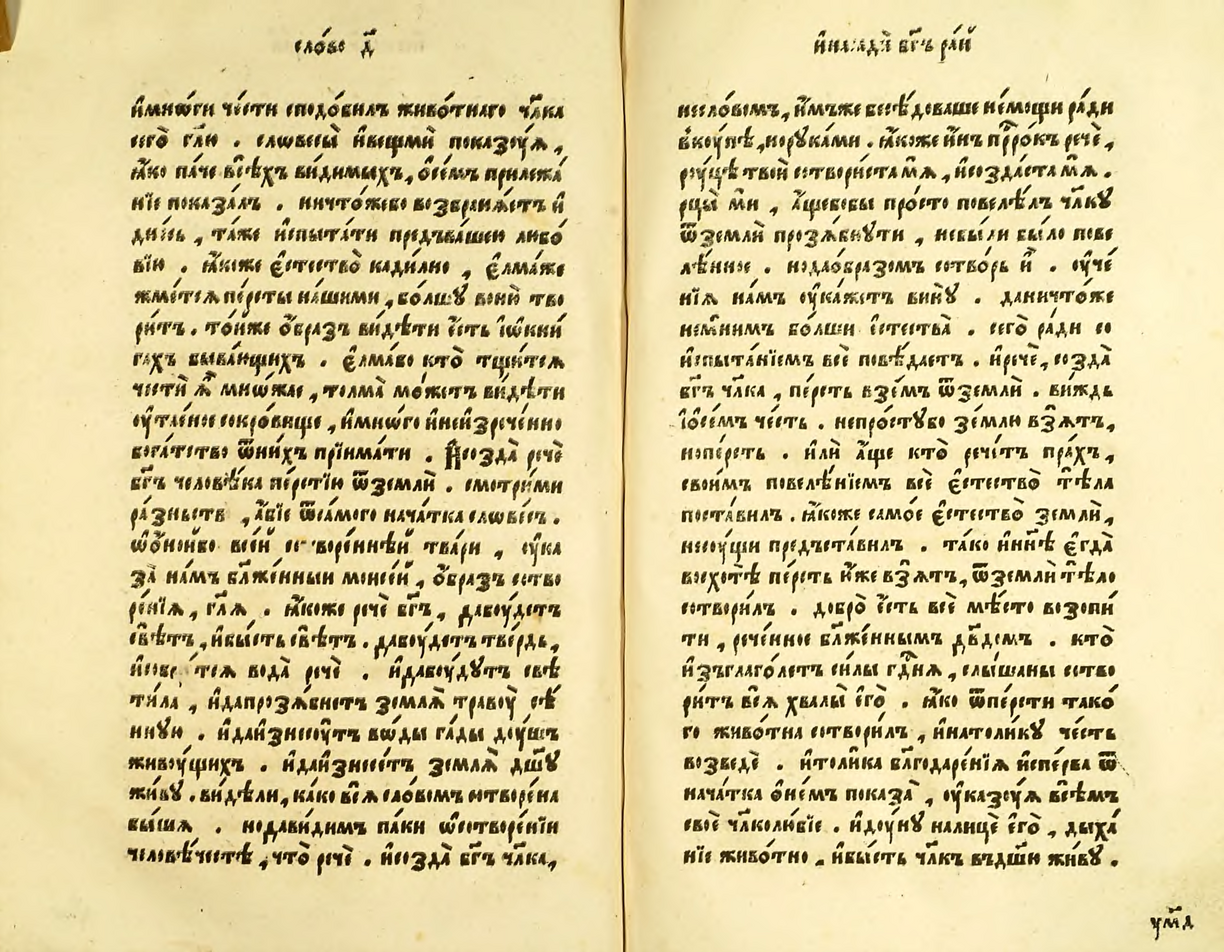 сло́во д҃
и҆мнѡ́ги че́сти сподо́билъ живо́тнаго чл҃ка
сего̀ гл҃ю . слѡвесы̀ и҆вещмѝ показꙋ́ѧ ,
ꙗ҆́ко па́че всѣ́хъ ви́димыхъ , ѡ҆се́мъ прилежа́
нїе показа́лъ . ничто́жебо возбранѧ́етъ и҆
ди́нь , та́же и҆спыта́ти предъва́шею любо́
вїю . ꙗ҆́коже є҆стество̀ кади́лно , є҆лма́же
жме́тсѧ пе́рсты на́шими , бо́лшꙋ воню̀ тво
ри́тъ . то́йже ѡ҆́бразъ ви́дѣти є҆́сть і҆ѡ҆кни́
гахъ быва́ющихъ . є҆лма́бо кто̀ тщи́тсѧ
че́сти ꙗ҆̀ мнѡ́жае , толма̀ мо́жетъ ви́дѣти
ᲂу҆тае́ное сокро́вище , и҆мнѡ́го и҆неизрече́нно
бога́тство ѿни́хъ прїима́ти . И҆созда̀ речѐ
бг҃ъ человѣ́ка пе́рстїю ѿземлѝ . смотри́ми
ра́зньств , а҆́бїе ѿса́мого нача́тка слѡве́съ .
ѡ҆ѡ҆́нойбо все́й сотворе́ннѣй тва́ри , ᲂу҆ка
за̀ на́мъ бл҃же́нныи моисе́й , ѡ҆́бразъ сотво
ре́нїѧ , гл҃ѧ . ꙗ҆́коже речѐ бг҃ъ , дабꙋ́детъ
свѣ́тъ , и҆бы́сть свѣ́тъ . дабꙋ́детъ тве́рдь ,
и҆собе тсѧ вода̀ речѐ . и҆дабꙋ́дꙋтъ свѣ
ти́ла , и҆дапрозѧ́бнетъ землѧ̀ травꙋ̀ сѣ́
ннꙋю . и҆даи҆знесꙋ́тъ вѡ́ды га́ды дꙋ́шъ
живꙋ́щихъ . и҆даи҆знесе́тъ землѧ̀ дш҃ꙋ
жи́вꙋ . ви́дѣли , ка́ко всѧ̀ сло́вомъ сотворе́на
бы́шѧ . нодави́димъ па́ки ѡ҆сотворе́нїи
человѣ́честѣ , что̀ речѐ . и҆созда̀ бг҃ъ чл҃ка ,
и҆насадѝ бг҃ъ ра́й
несло́вомъ , и҆́мъже бесѣ́доваше не́мощи ра́ди
вкꙋ́пѣ , норꙋка́ми . ꙗ҆́коже и҆́нъ прⷪ҇ро́къ речѐ ,
рꙋ́цѣ твоѝ сотвори́ста мѧ̀ , и҆созда́ста мѧ̀ .
рцы̀ мѝ , а҆́щебобы про́сто повелѣ́лъ чл҃кꙋ
ѿземлѝ прозѧ́бнꙋти , небы́ли бы́ло пове
лѣ́нное . нодаѡбразомъ сотво́рь и҆̀ . ᲂу҆че́
нїѧ на́мъ ᲂу҆ка́жетъ винꙋ̀ . даничто́же
немни́мъ бо́лши є҆стества̀ . сего̀ ра́ди со
и҆спыта́нїемъ всѐ повѣ́даетъ . и҆речѐ , созда̀
бг҃ъ чл҃ка , пе́рсть взе́мъ ѿземлѝ . виждь
і҆ѡ҆се́мъ че́сть . непро́стꙋбо зе́млю взѧ́тъ ,
нопе́рсть . и҆лѝ а҆́ще кто̀ рече́тъ пра́хъ ,
свои́мъ повелѣ́нїемъ всѐ є҆стество̀ тѣ́ла
поста́вилъ . ꙗ҆́коже само́е є҆стество̀ землѝ ,
несꙋ́щи предъста́вилъ . та́ко и҆нн҃ѣ є҆гда̀
восхотѣ̀ пе́рсть и҆́же взѧ́тъ , ѿземлѝ тѣ́ло
сотвори́лъ . добро̀ є҆́сть всѐ мѣ́сто возопи́
ти , рече́нное бл҃же́ннымъ дв҃домъ . кто̀
и҆зъглаго́летъ си́лы гдⷭ҇нѧ , слы́шаны сотво
ри́тъ всѧ̀ хвалы̀ є҆го̀ . ꙗ҆́ко ѿпе́рсти тако́
го живо́тна сотвори́лъ , и҆натоли́кꙋ че́сть
возведѐ . и҆толи́ка бл҃годаре́нїѧ и҆спе́рва ѿ
нача́тка ѡ҆не́мъ показа̀ , ᲂу҆казꙋ́ѧ всѣ́мъ
своѐ чл҃колю́бїе . и҆дꙋ́нꙋ налицѐ є҆го̀ , дыха́
нїе живо́тно . и҆бы́сть чл҃къ въдш҃ю жи́вꙋ .